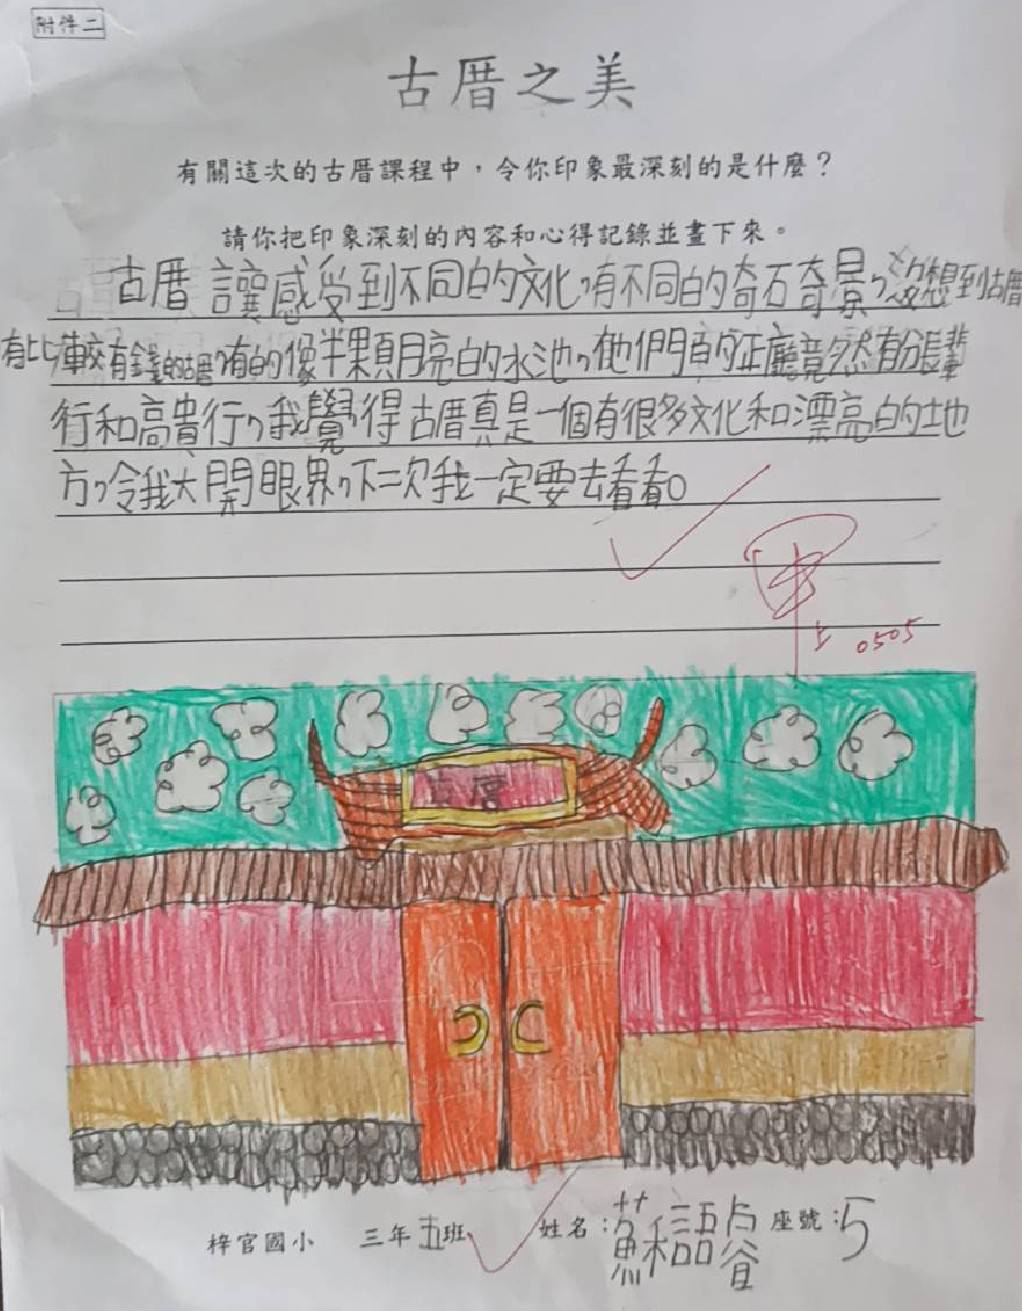 附件二
古厝之美
有關這次的古厝課程中，令你印象最深刻的是什麼？
請你把印象深刻的內容和心得記錄並畫下來。
古厝讓感受到不同的文化，有不同的奇石奇景，沒想到古厝
有比較有錢的古厝，有的像半顆月亮的水池，他們的正廳竟然有分長輩
行和高貴行，我覺得古厝真是一個有很多文化和漂亮的地
方，令我大開眼界，下次我一定要去看看。
0505
古厝
梓官國小 三年五班 姓名：蘇語睿 座號：5